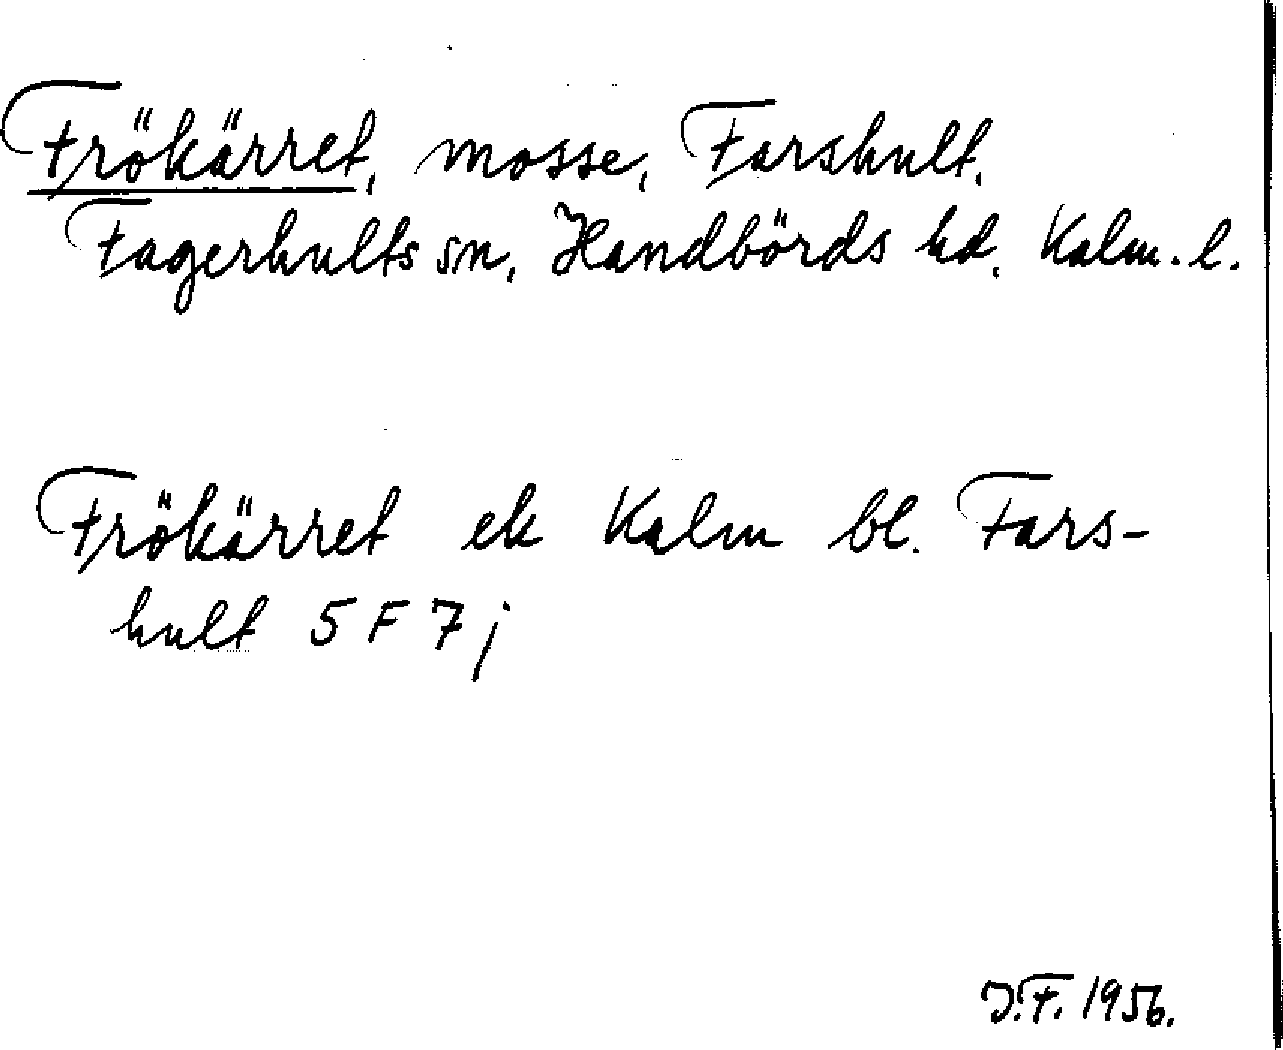 Frökärret, mosse, Farshult,
Fagerhults sn, Handbörds hd, Kalm. l.
Frökärret ek Kalm bl. Fars-
hult 5 F 7 j
J.F. 1956.